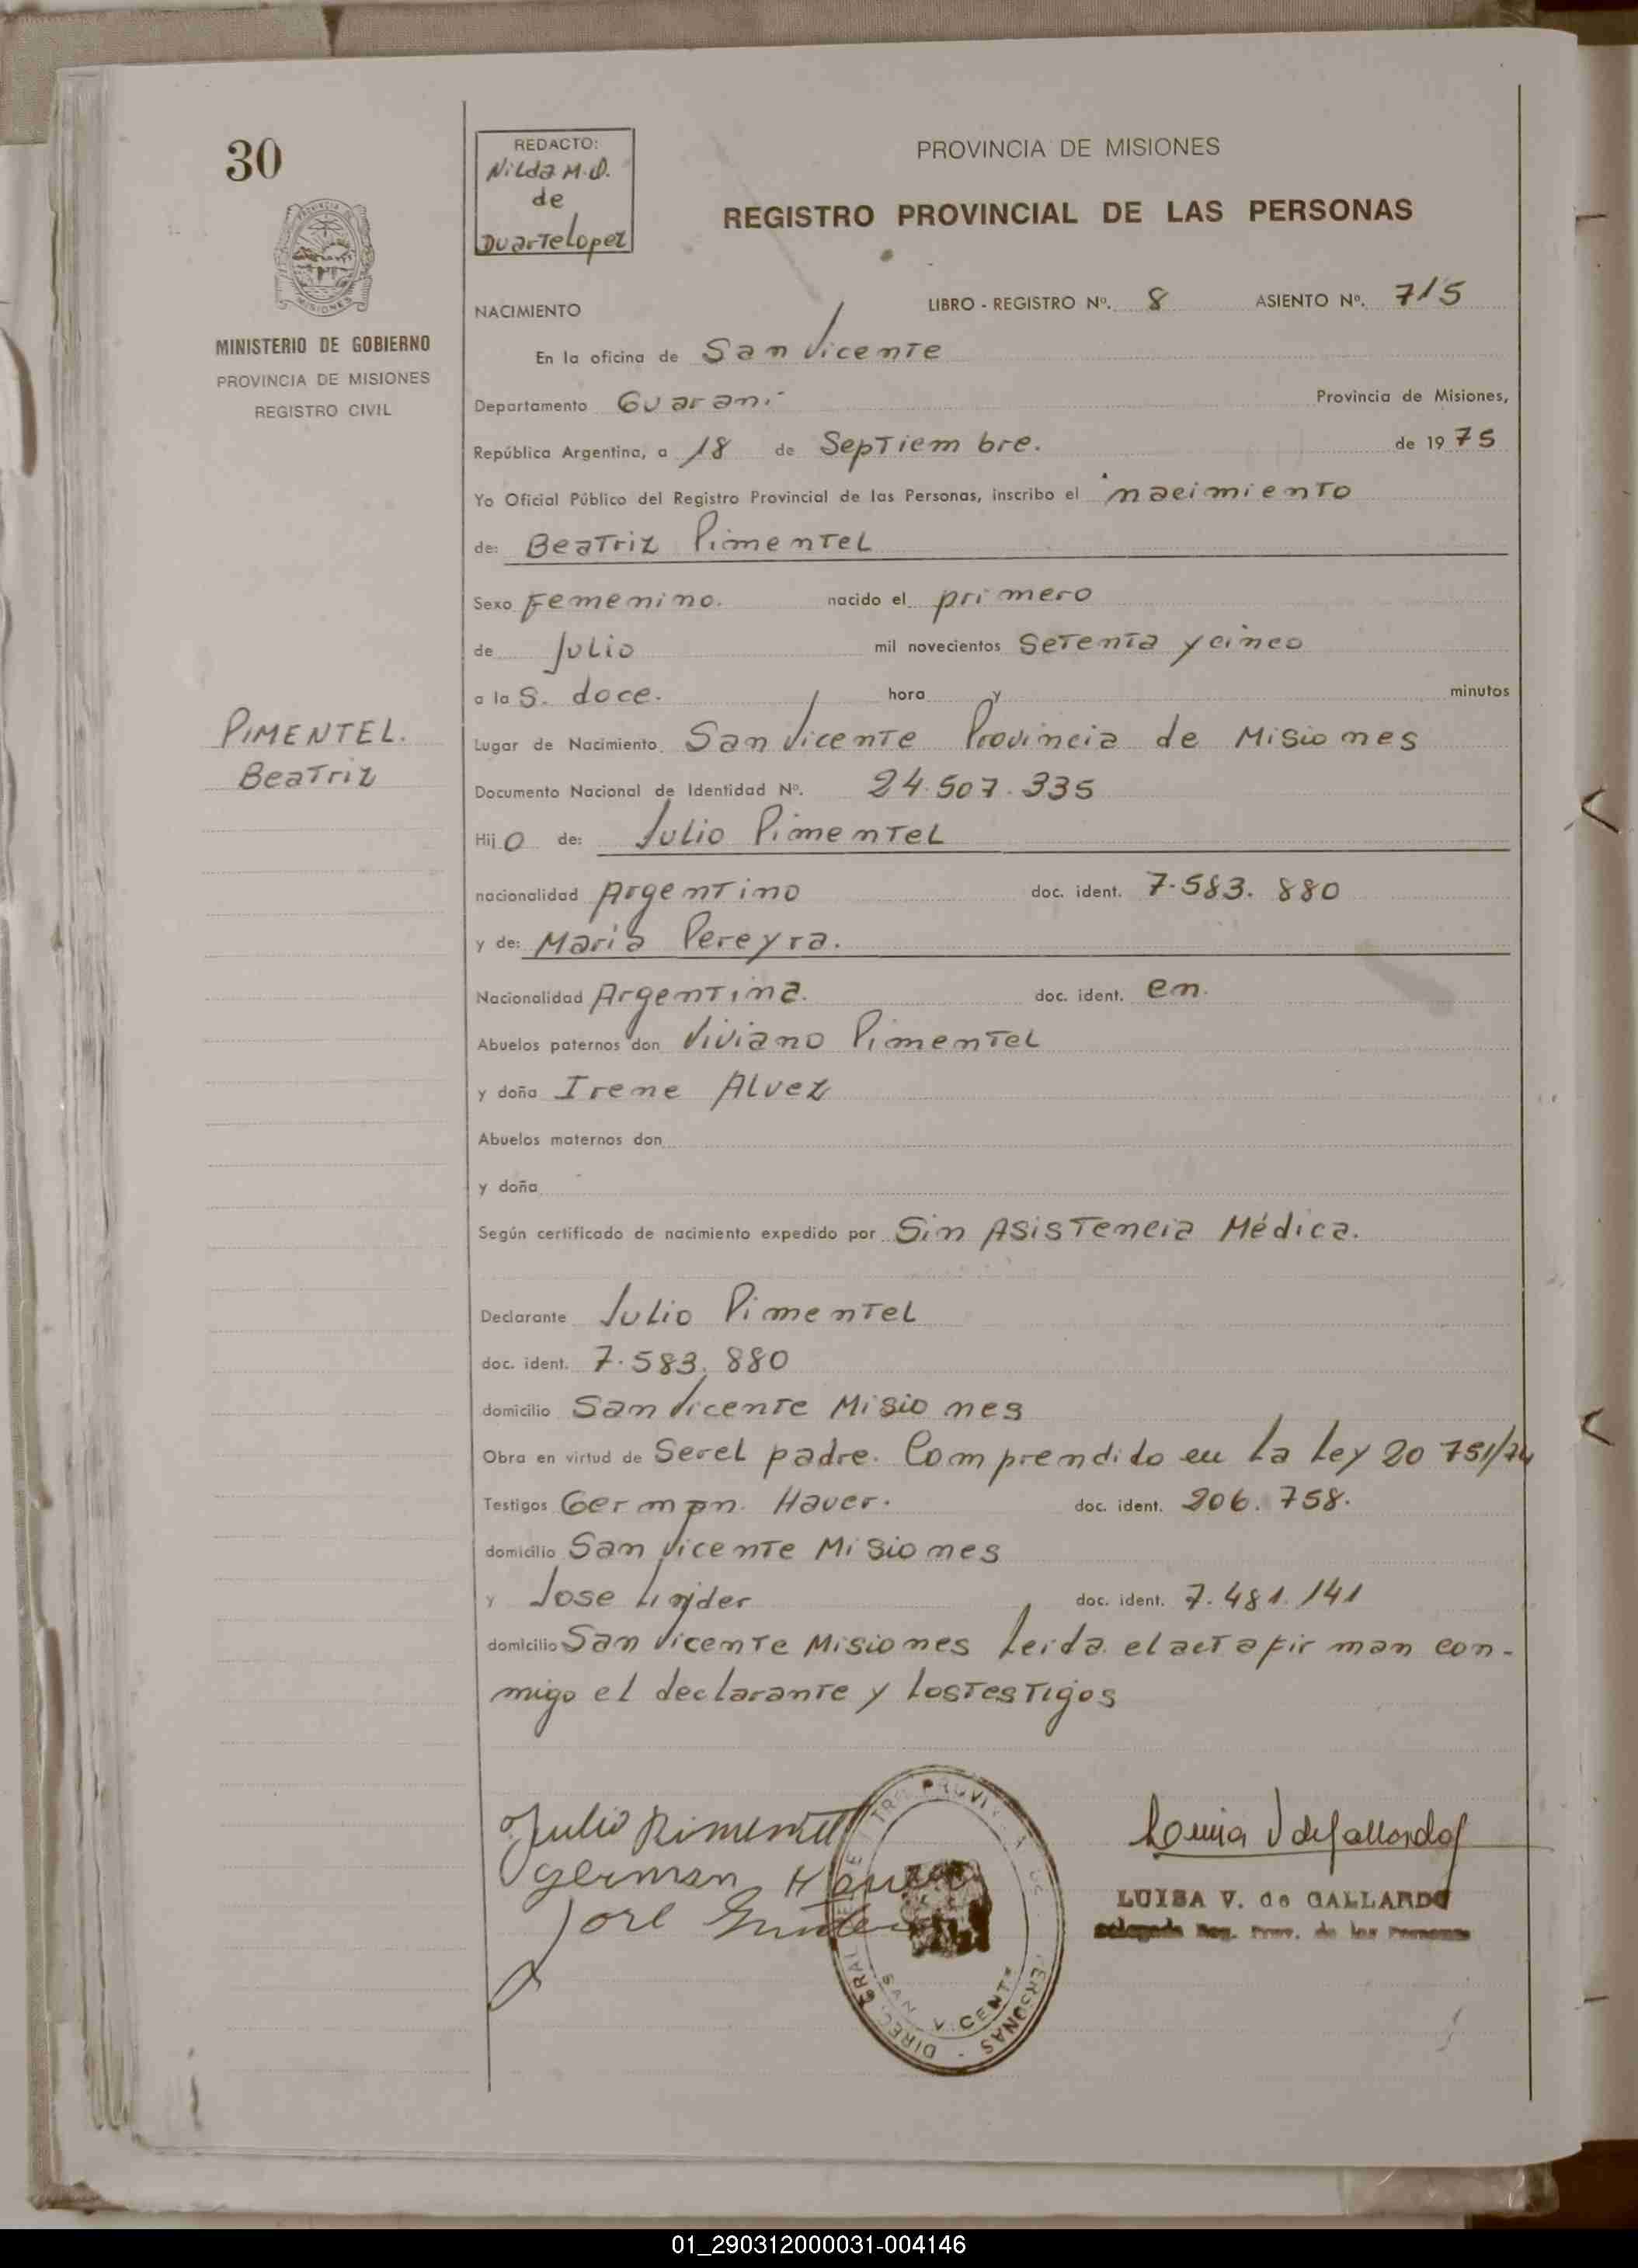 30
REDACTO:
Nilda M.D.
de
Duarte Lopez
PROVINCIA DE MISIONES
REGISTRO PROVINCIAL DE LAS PERSONAS
PROVINCIA DE
MISIONES
MINISTERIO DE GOBIERNO
PROVINCIA DE MISIONES
REGISTRO CIVIL
NACIMIENTO LIBRO - REGISTRO Nº. 8 ASIENTO Nº. 715
En la oficina de San Vicente
Departamento Guaraní Provincia de Misiones,
República Argentina, a 18 de Septiembre. de 1975
Yo Oficial Público del Registro Provincial de las Personas, inscribo el nacimiento
de: Beatriz Pimentel
Sexo Femenino. nacido el primero
de Julio mil novecientos Setenta y cinco
a la s. doce. hora y minutos
PIMENTEL.
Beatriz
Lugar de Nacimiento San Vicente Provincia de Misiones
Documento Nacional de Identidad Nº. 24.507.335
Hijo de: Julio Pimentel
nacionalidad Argentino doc. ident. 7.583.880
y de: Maria Pereyra.
Nacionalidad Argentina. doc. ident. en.
Abuelos paternos don Viviano Pimentel
y doña Irene Alvez
Abuelos maternos don
y doña
Según certificado de nacimiento expedido por Sin Asistencia Médica.
Declarante Julio Pimentel
doc. ident. 7.583.880
domicilio San Vicente Misiones
Obra en virtud de Ser el padre. Comprendido en La Ley 20 751/74
Testigos German. Hauer. doc. ident. 206.758.
domicilio San Vicente Misiones
y Jose doc. ident. 7.481.141
domicilio San Vicente Misiones Leida el acta firman con-
migo el declarante y los testigos
Julio Pimentel
German Hauer
Jose
LUISA V. de GALLARDO
Delegada Reg. Prov. de las Personas
SAN VICENTE
01_290312000031-004146